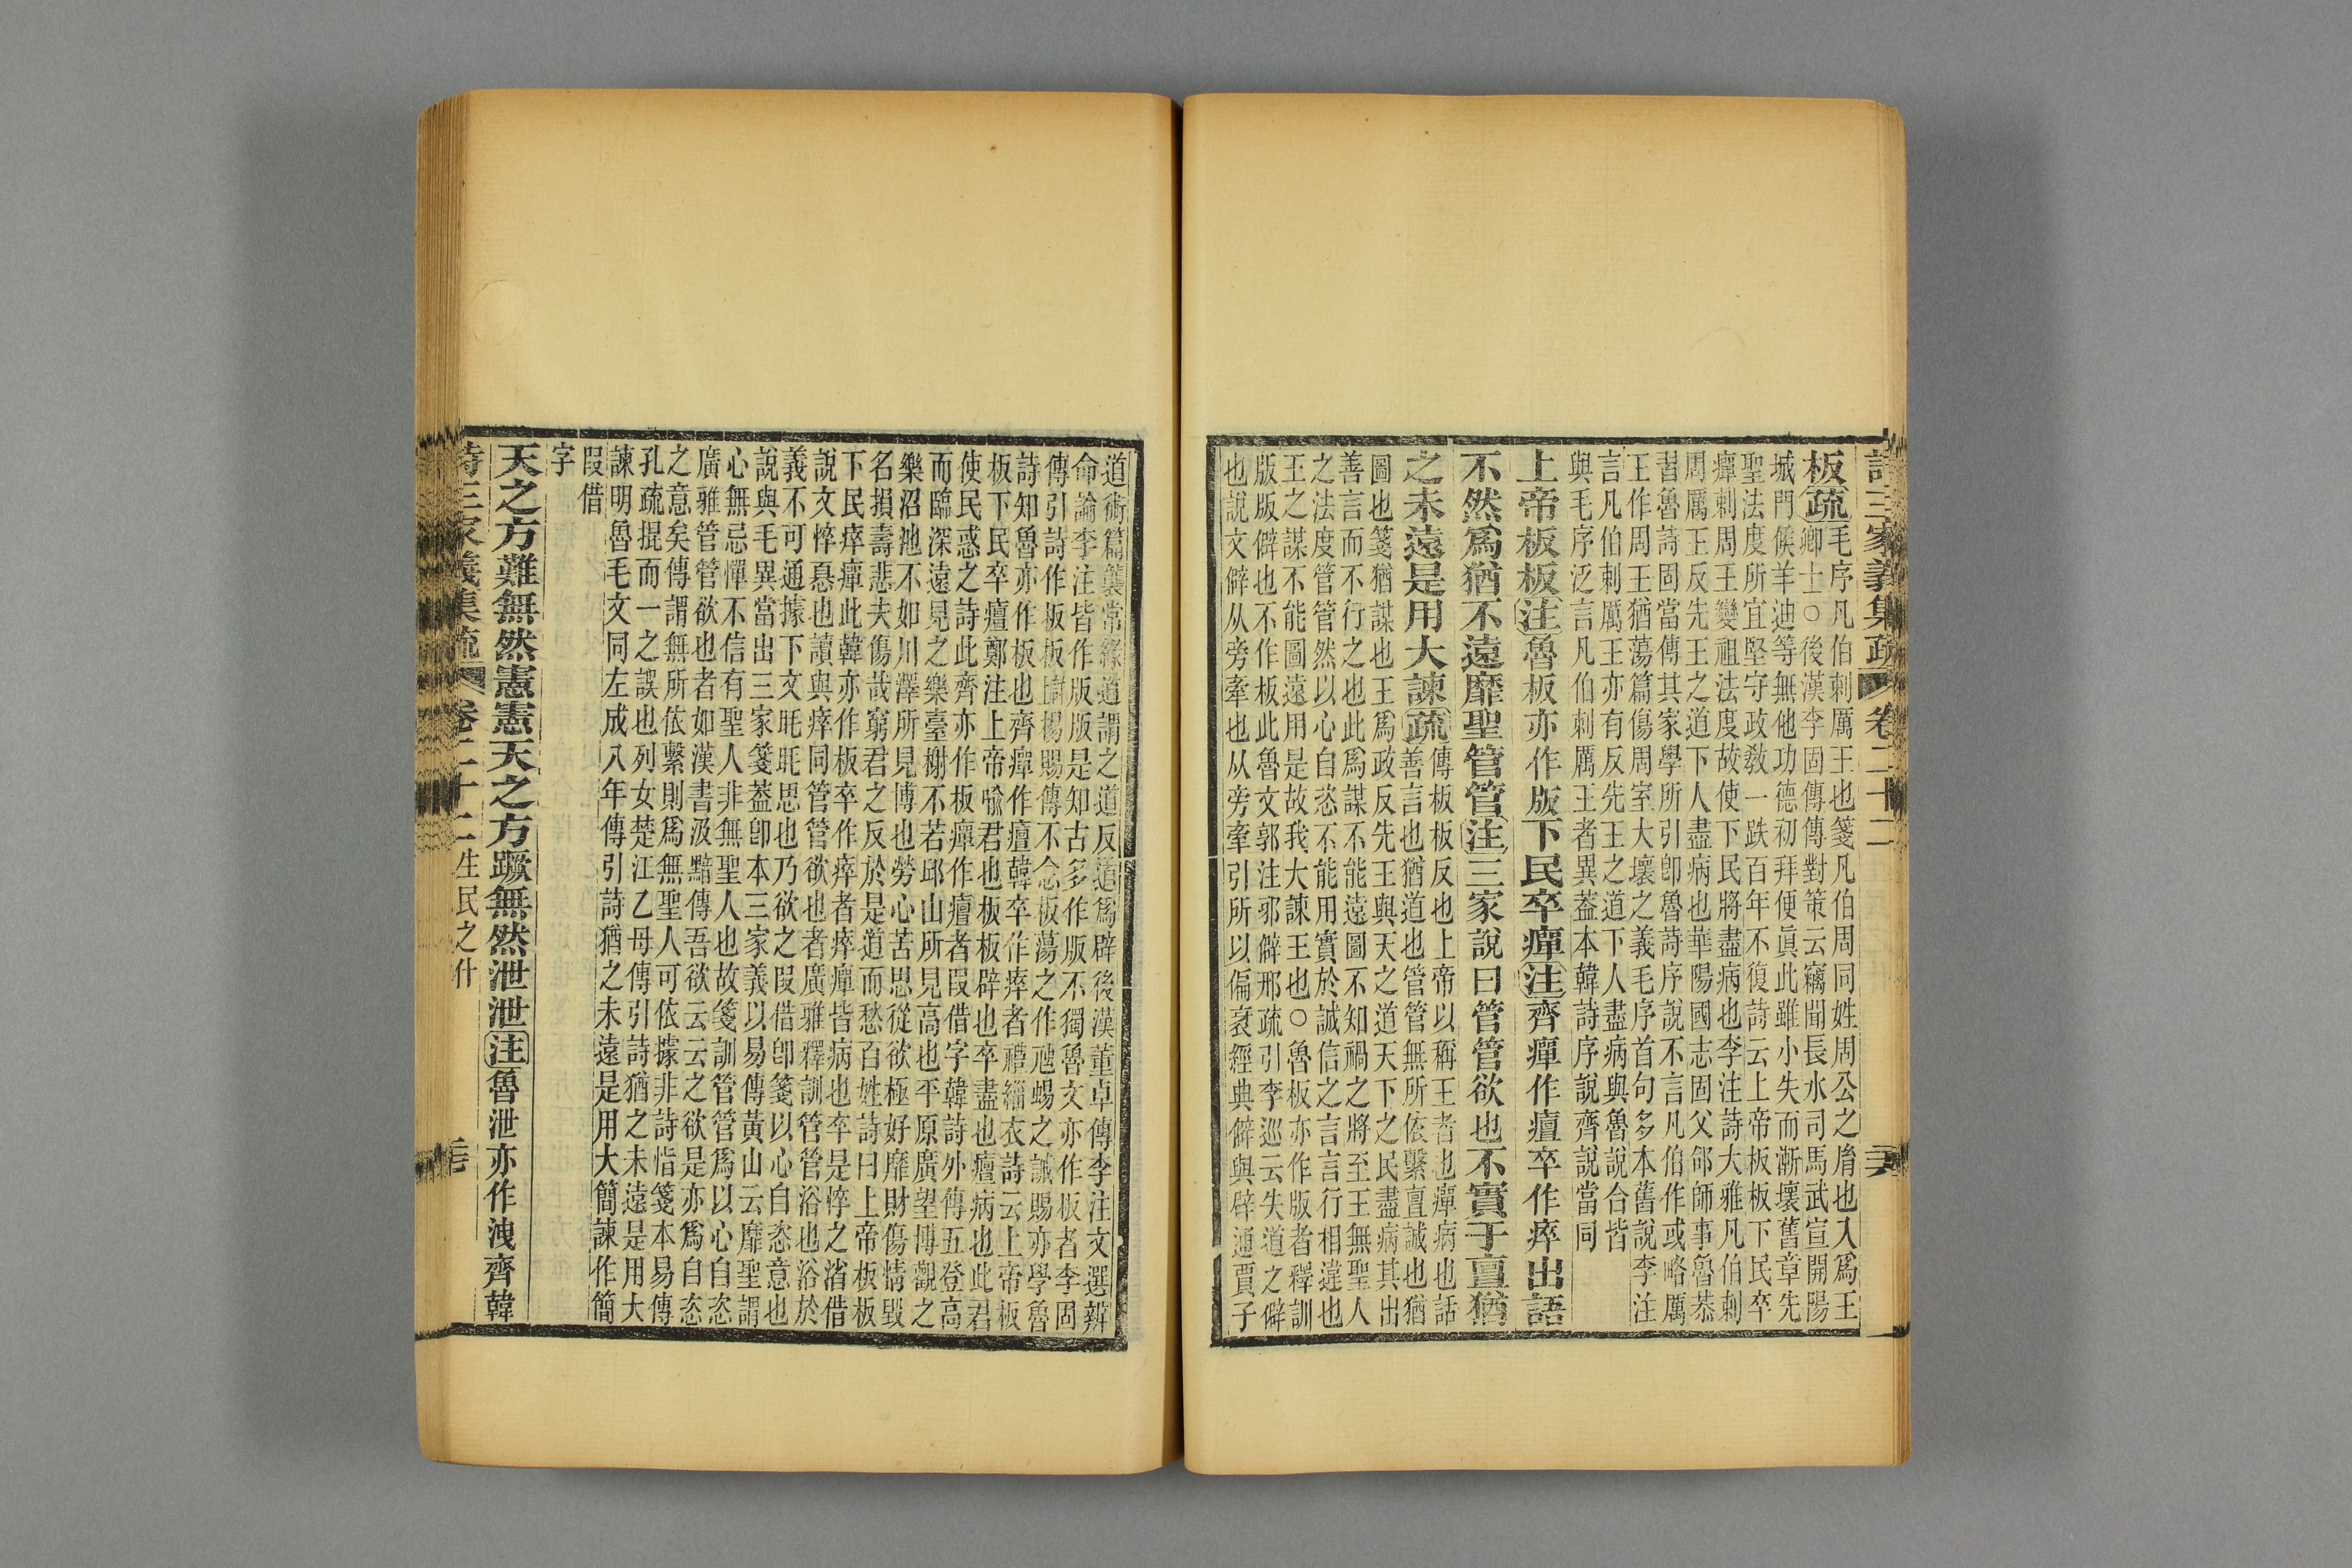 詩三家義集疏 卷二十二
板疏毛序凡伯刺厲王也箋凡伯周同姓周公之胤也入爲王
卿士○後漢李固傳傳對策云竊聞長水司馬武宣開陽
城門候羊迪等無他功德初拜便眞此雖小失而漸壞舊章先
聖法度所宜堅守政敎一跌百年不復詩云上帝板板下民卒
癉刺周王變祖法度故使下民將盡病也李注詩大雅凡伯刺
周厲王反先王之道下人盡病也華陽國志固父郃師事魯恭
習魯詩固當傳其家學所引卽魯詩序說不言凡伯作或略厲
王作周王猶蕩篇傷周室大壞之義毛序首句多本舊說李注
言凡伯刺厲王亦有反先王之道下人盡病與魯說合皆
與毛序泛言凡伯刺厲王者異葢本韓詩序說齊說當同
上帝板板注魯板亦作版下民卒癉注齊癉作癉卒作瘁出話
不然爲猶不遠靡聖管管注三家說曰管管欲也不實于亶猶
之未遠是用大諫疏傳板板反也上帝以稱王者也癉病也話
善言也猶道也管管無所依繫亶誠也猶
圖也箋猶謀也王爲政反先王與天之道天下之民盡病其出
善言而不行之也此爲謀不能遠圖不知禍之將至王無聖人
之法度管管然以心自恣不能用實於誠信之言言行相違也
王之謀不能圖遠用是故我大諫王也○魯板亦作版者釋訓
版版僻也不作板此魯文郭注邪僻邢疏引李巡云失道之僻
也說文僻从旁牽也从旁牽引所以偏衺經典僻與辟通賈子
道術篇襲常緣道謂之道反道爲辟後漢董卓傳李注文選辨
命論李注皆作版版是知古多作版不獨魯文亦作板者李固
傳引詩作板板楊賜傳不念板蕩之作虺蜴之誡賜亦學魯
詩知魯亦作板也齊癉作癉韓卒作瘁者禮緇衣詩云上帝板
板下民卒癉鄭注上帝喻君也板板辟也卒盡也癉病也此君
使民惑之詩此齊亦作板癉作癉者叚借字韓詩外傳五登高
而臨深遠見之樂臺榭不若邱山所見高也平原廣望博觀之
樂沼池不如川澤所見博也勞心苦思從欲極好靡財傷情毀
名損壽悲夫傷哉窮君之反於是道而愁百姓詩曰上帝板板
下民瘁癉此韓亦作板卒作瘁者瘁癉皆病也卒是悴之消借
說文悴惪也讀與瘁同管管欲也者廣雅釋訓管管浴也浴於
義不可通據下文眊眊思也乃欲之叚借卽箋以心自恣意也
說與毛異當出三家箋葢卽本三家義以易傳黃山云靡聖謂
心無忌憚不信有聖人非無聖人也故箋訓管管爲以心自恣
廣雅管管欲也者如漢書汲黯傳吾欲云云之欲是亦爲自恣
之意矣傳謂無所依繫則爲無聖人可依據非詩恉箋本易傳
孔疏掍而一之誤也列女楚江乙母傳引詩猶之未遠是用大
諫明魯毛文同左成八年傳引詩猶之未遠是用大簡諫作簡
叚借
字
天之方難無然憲憲天之方蹶無然泄泄注魯泄亦作洩齊韓
詩三家義集疏 卷二十二 生民之什